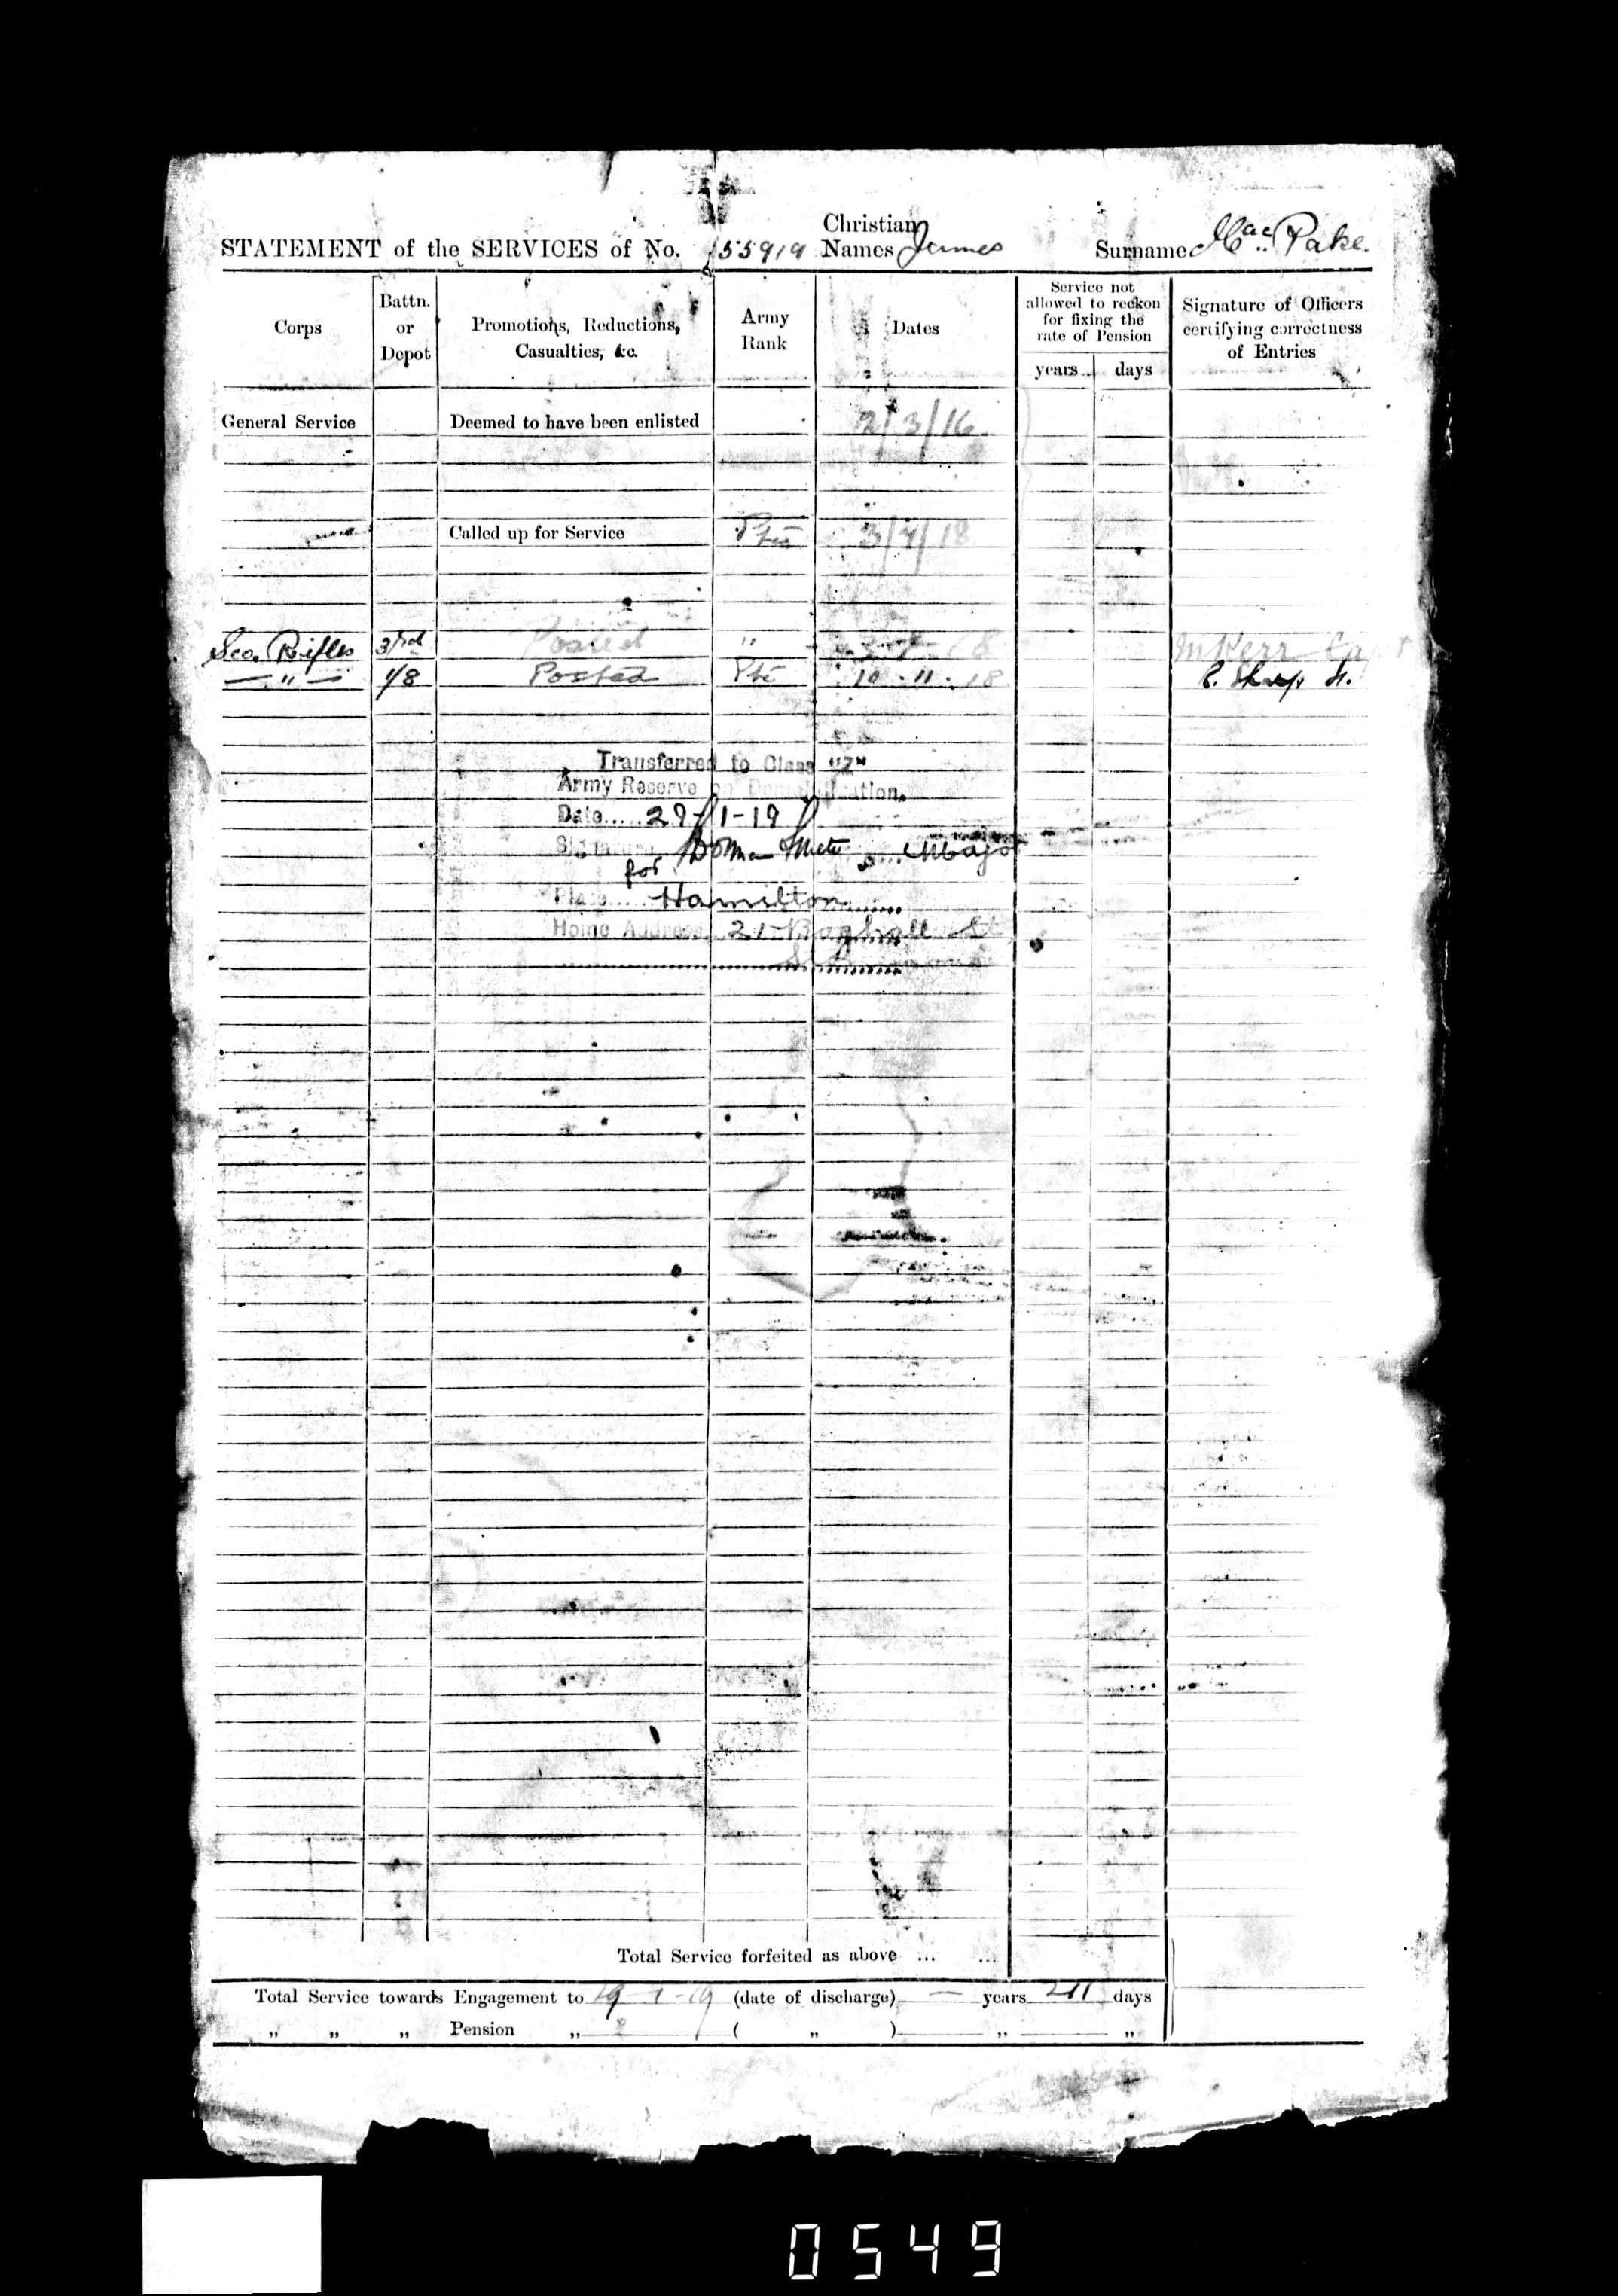 STATEMENT of the SERVICES of No. 55919 Christian Names James Surname Mac Pake.
Corps
Battn. or Depot
Promotions, Reductions, Casualties, &c.
Army Rank
Dates
Service not allowed to reckon for fixing the rate of Pension
years days
Signature of Officers certifying correctness of Entries
General Service Deemed to have been enlisted 2/3/16
Called up for Service Pte 3/7/18
Sco. Rifles 3rd Posted " 8 McKerr Capt
— " — 1/8 Posted Pte 10.11.18 Lt.
Transferred to Class "Z"
Army Reserve on Demobilization.
Date..... 29-1-19
Signature Major
for
Place..... Hamilton
Home Address 21 St
Total Service forfeited as above ... ...
Total Service towards Engagement to 29-1-19 (date of discharge) — years 211 days
„ „ „ Pension „ ( „ ) „ „
0549